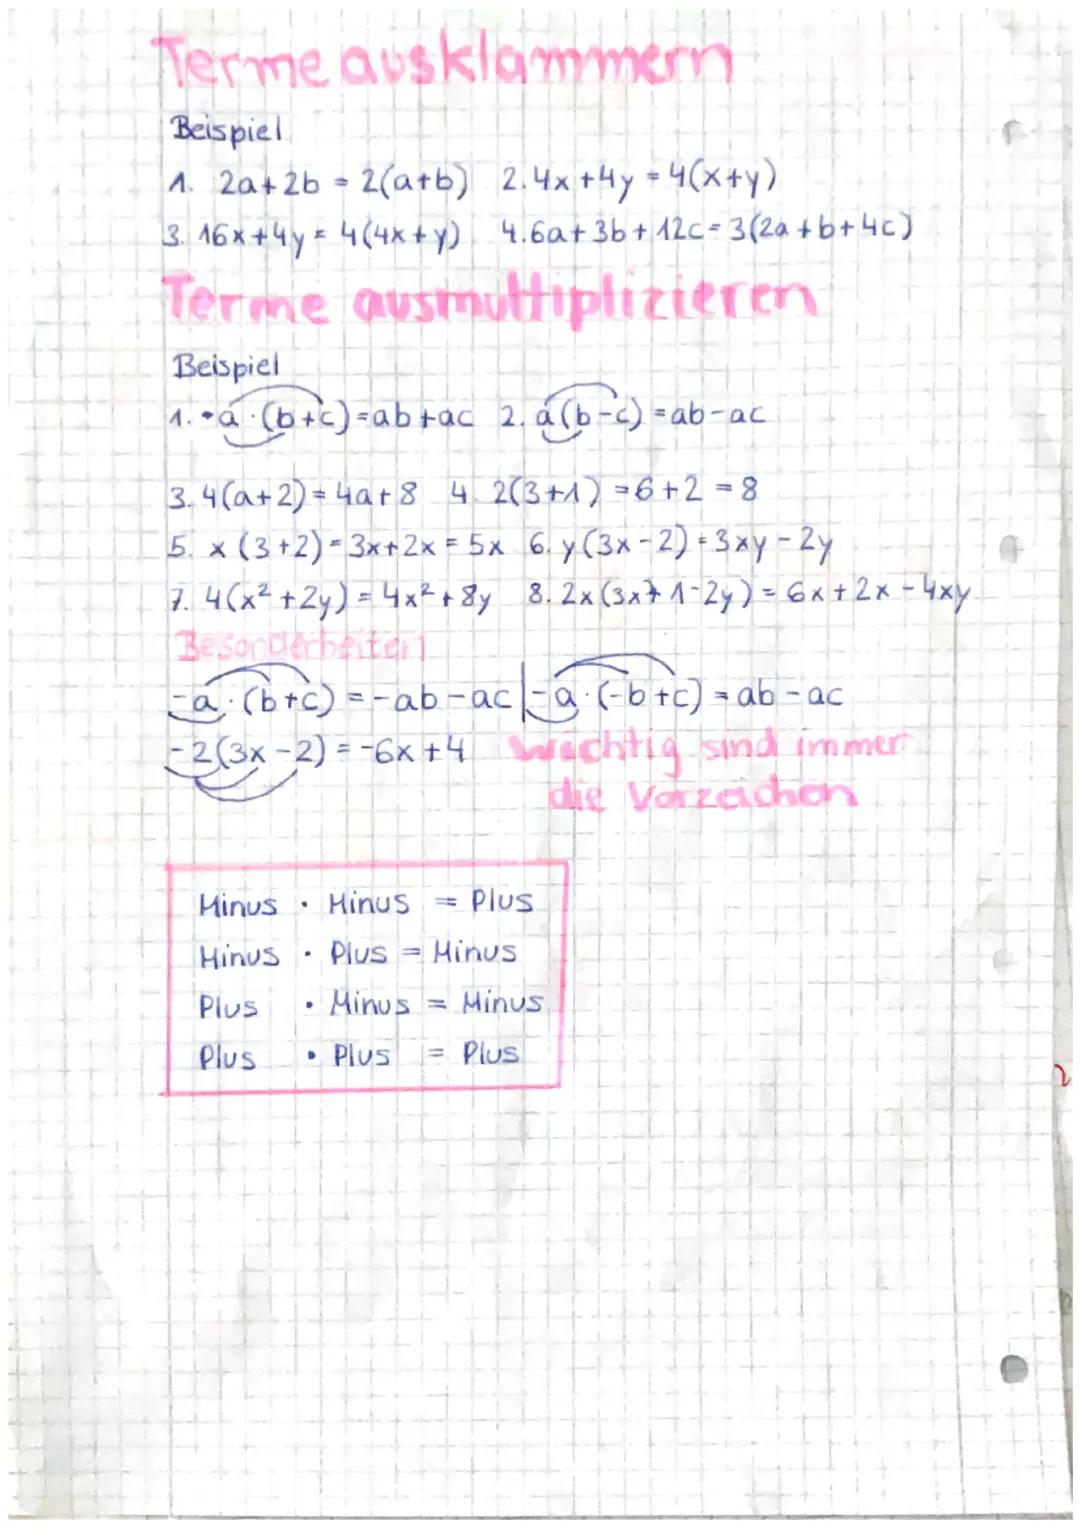 Terme ausklammern
Beispiel
1. 2a+2b = 2(a+b) 2. 4x+4y = 4(x+y)
3. 16x+4y = 4(4x+y) 4. 6a+3b+12c = 3(2a+b+4c)
Terme ausmultiplizieren
Beispiel
1. a·(b+c)=ab+ac 2. a(b-c) = ab-ac
3. 4(a+2) = 4a+8 4. 2(3+1) = 6+2 = 8
5. x (3+2) = 3x+2x = 5x 6. y(3x-2) = 3xy-2y
7. 4(x²+2y) = 4x²+8y 8. 2x(3x+1-2y) = 6x+2x-4xy
Besonderheiten
-a·(b+c) = -ab-ac | -a·(-b+c) = ab-ac
-2(3x-2) = -6x+4 Wichtig sind immer
die Vorzeichen
Minus · Minus = Plus
Minus · Plus = Minus
Plus · Minus = Minus
Plus · Plus = Plus